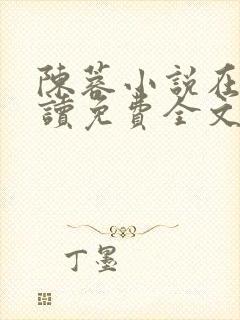 陳蓉小說在
讀免費全文
丁墨